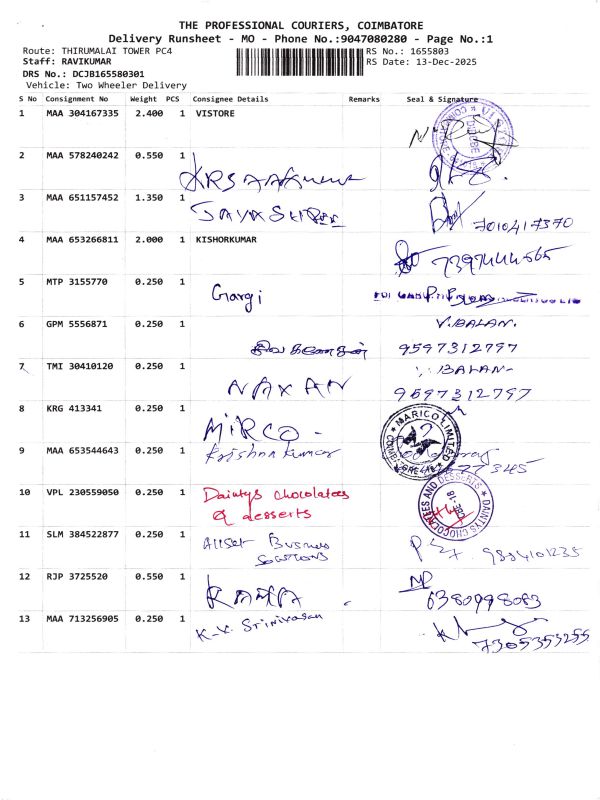 THE PROFESSIONAL COURIERS, COIMBATORE
Delivery Runsheet - MO - Phone No.:9047080280 - Page No.:1
Route: THIRUMALAI TOWER PC4 RS No.: 1655803
Staff: RAVIKUMAR RS Date: 13-Dec-2025
DRS No.: DCJB165580301
Vehicle: Two Wheeler Delivery
S No Consignment No Weight PCS Consignee Details Remarks Seal & Signature
1 MAA 304167335 2.400 1 VISTORE
2 MAA 578240242 0.550 1
3 MAA 651157452 1.350 1 7010417370
4 MAA 653266811 2.000 1 KISHORKUMAR
5 MTP 3155770 0.250 1 Gargi
6 GPM 5556871 0.250 1 V.BALAN.
9597312797
7 TMI 30410120 0.250 1 NAXAN BALAN-
9597312797
8 KRG 413341 0.250 1 MiRCO - MARICO LIMITED
9 MAA 653544643 0.250 1 Krishna Kumar
10 VPL 230559050 0.250 1 Daintys chocolatees
& desserts DAINTY'S CHOCOLATEES AND DESSERTS
CBE-18
11 SLM 384522877 0.250 1 Allset Business
Solutions 9884101235
12 RJP 3725520 0.550 1 6380998083
13 MAA 713256905 0.250 1 K.V. Srinivasan 7305353255